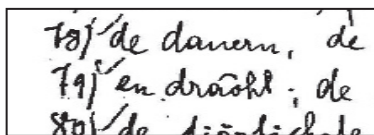 78) de dauern, de
79) en drööhl; de
80) de